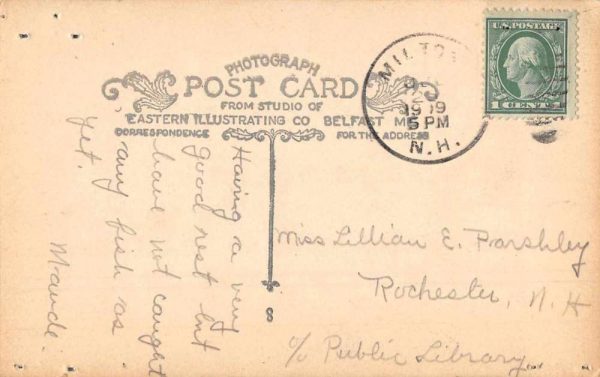 PHOTOGRAPH
POST CARD
FROM STUDIO OF
EASTERN ILLUSTRATING CO BELFAST ME
CORRESPONDENCE
FOR THE ADDRESS
MILTON
5 PM
N.H.
U.S. POSTAGE
1 CENT 1
Having a very
good rest but
have not caught
any fish as
yet.
Maude.
Miss Lillian E. Parshley
Rochester, N. H
c/o Public Library
8